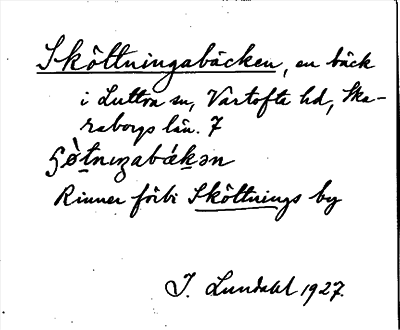 Sköttningabäcken, en bäck
i Luttra sn, Vartofta hd, Ska-
raborgs län. 7
Rinner förbi Sköttnings by
J. Lundahl 1927.